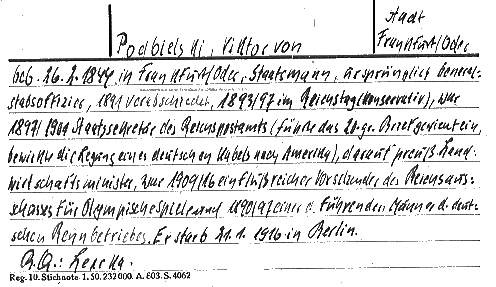 Podbielski, Viktor von
Stadt
Frankfurt/Oder
geb. 26.2.1844 in Frankfurt/Oder, Staatsmann, ursprünglich General-
stabsoffizier, 1891 verabschiedet, 1893/97 im Reichstag (konservativ), war
1897/1901 Staatssekretär des Reichspostamts (führte das 20-gr. Briefgewicht ein,
bewirkte die Legung eines deutschen Kabels nach Amerika), darauf preuß. Land-
wirtschaftsminister, war 1909/16 einflußreicher Vorsitzender des Reichsaus-
schusses für Olympische Spiele und 1890/97 einer d. führenden Männer d. deut-
schen Rennbetriebes. Er starb 21.1.1916 in Berlin.
Reg. 10. Stichnote. 1. 50. 232 000. A. 803. S. 4062